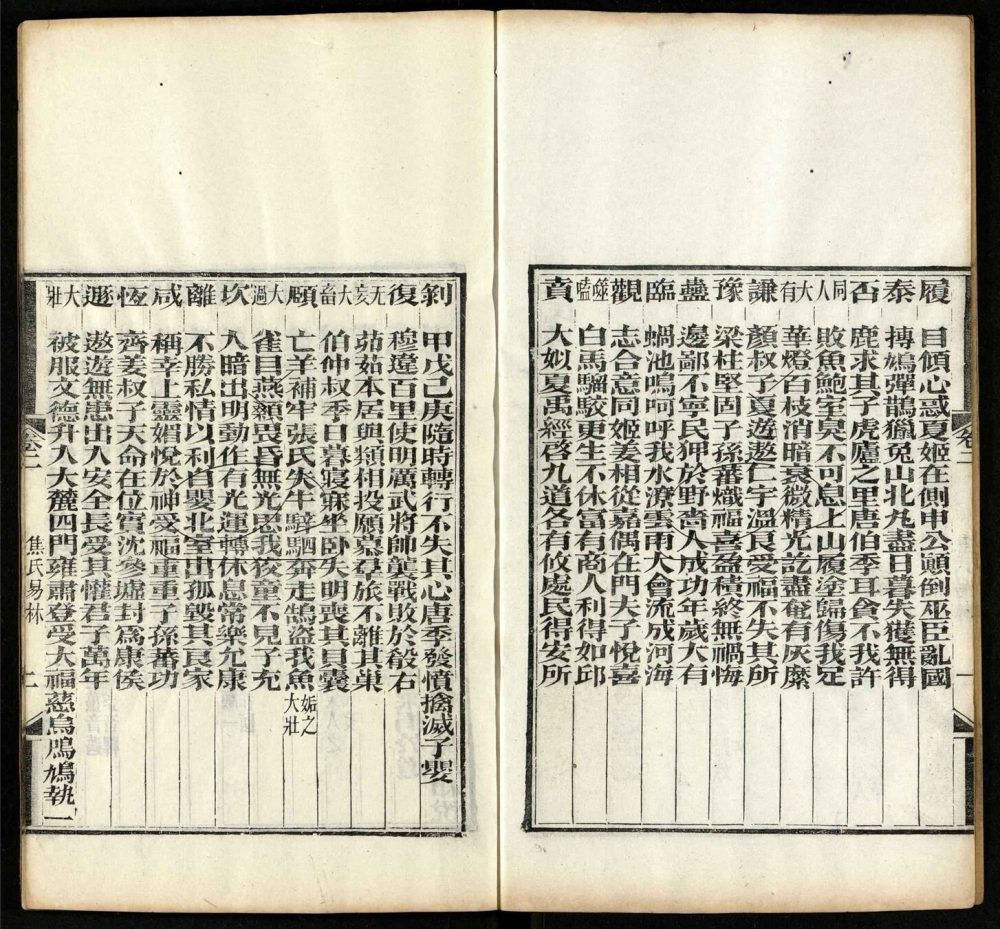 履 目傾心惑夏姬在側申公顛倒巫臣亂國
泰 摶鳩彈鵲獵兔山北丸盡日暮失獲無得
否 鹿求其子虎廬之里唐伯季耳貪不我許
同人 敗魚鮑室臭不可息上山履塗歸傷我足
大有 華燈百枝消暗衰微精光訖盡奄有灰糜
謙 顏叔子夏遊遨仁宇溫良受福不失其所
豫 梁柱堅固子孫蕃熾福喜盈積終無禍悔
蠱 邊鄙不寧民狎於野嗇人成功年歲大有
臨 蝸池鳴呵呼我水潦雲雨大會流成河海
觀 志合意同姬姜相從嘉偶在門夫子悅喜
噬嗑 白馬騮駮更生不休富有商人利得如邱
賁 大姒夏禹經啓九道各有攸處民得安所
卷二
一
剝 甲戊己庚隨時轉行不失其心唐季發憤擒滅子嬰
復 穆違百里使明厲武將帥襲戰敗於殽右
无妄 茹茹本居與類相投願慕羣旅不離其巢
大畜 伯仲叔季日暮寢寐坐臥失明喪其貝囊
頤 亡羊補牢張氏失牛騂駟奔走鵠盜我魚 姤之大壯
大過 雀目燕頷畏昏無光思我狡童不見子充
坎 入暗出明動作有光運轉休息常樂允康
離 不勝私情以利自嬰北室出孤毀其良家
咸 稱幸上靈媚悅於神受福重重子孫蕃功
恆 齊姜叔子天命在位實沈參墟封爲康侯
遯 遨遊無患出入安全長受其懽君子萬年
大壯 被服文德升入大麓四門雍肅登受大福慈烏鳲鳩執一
卷二
焦氏易林
二